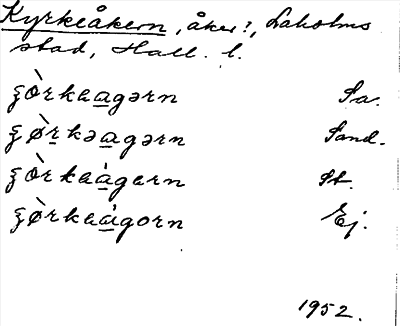 Kyrkeåkern, åker?, Laholms
stad, Hall. l.
ʒòrkeagərn Sa.
ʒø̀rkəagərn Sand.
ʒòrkeàgern St.
ʒø̀rkeàgorn Ej.
1952.